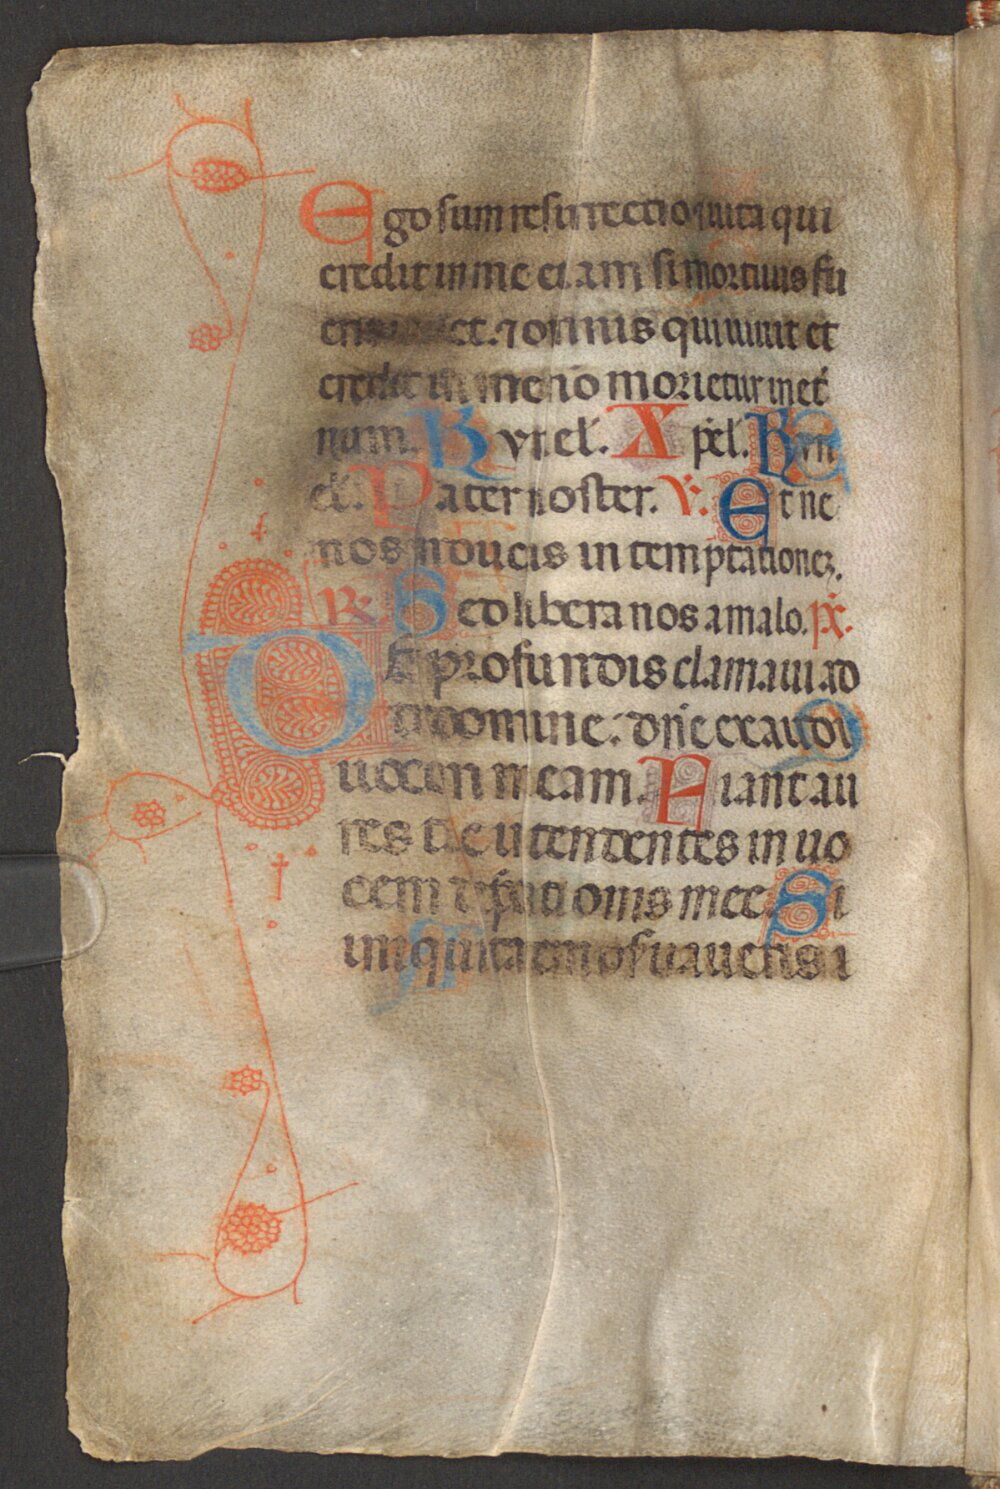 Ego sum resurrectio ⁊ uita qui
credit in me etiam si mortuus fu
erit uiuet. ⁊ omnis qui uiuit et
credit in me nō morietur in et̄
num. Kyrieł. Xp̄eł. Kyri
eł. Pater noster. ℣. Et ne
nos inducas in temptationeʒ.
℟. Sed libera nos a malo. p̄s.
De profundis clamaui ad
te domine: dn̄e exaudi
uocem meam. Fiant au
res tue intendentes in uo
cem dep̄cationis mee. Si
iniquitates obseruaueris